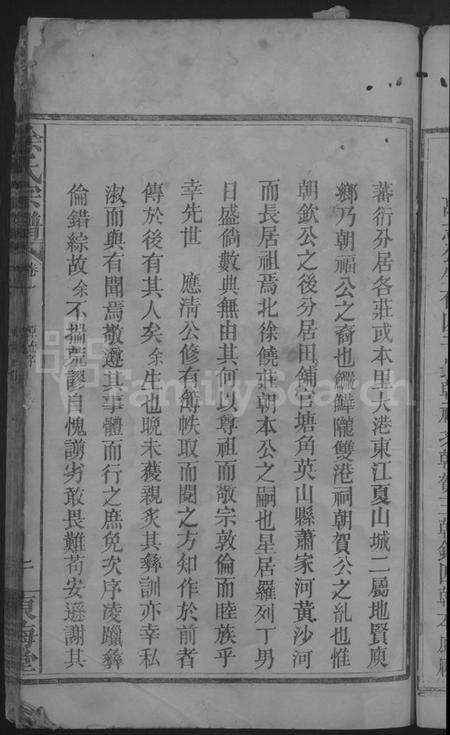 蕃衍分居各莊或本里大港東江夏山城二屬地賢庾
鄉乃朝福公之裔也雙港祠朝賀公之亂也惟
朝欽公之後分居田鋪官塘角英山縣蕭家河黃沙河
而長居祖焉北徐饒莊朝本公之嗣也星居羅列丁男
日盛倘數典無由其何以尊祖而敬宗敦倫而睦族乎
幸先世 應清公修有簿帙取而閱之方知作於前者
傳於後有其人矣余生也晚未獲親炙其彝訓亦幸私
淑而與有聞焉敬遵其事體而行之庶免次序凌躐彝
倫錯綜故余不揣荒謬自愧謭劣敢畏難苟安遜謝其
徐氏宗譜
卷一
二
東海堂
FamilySearch